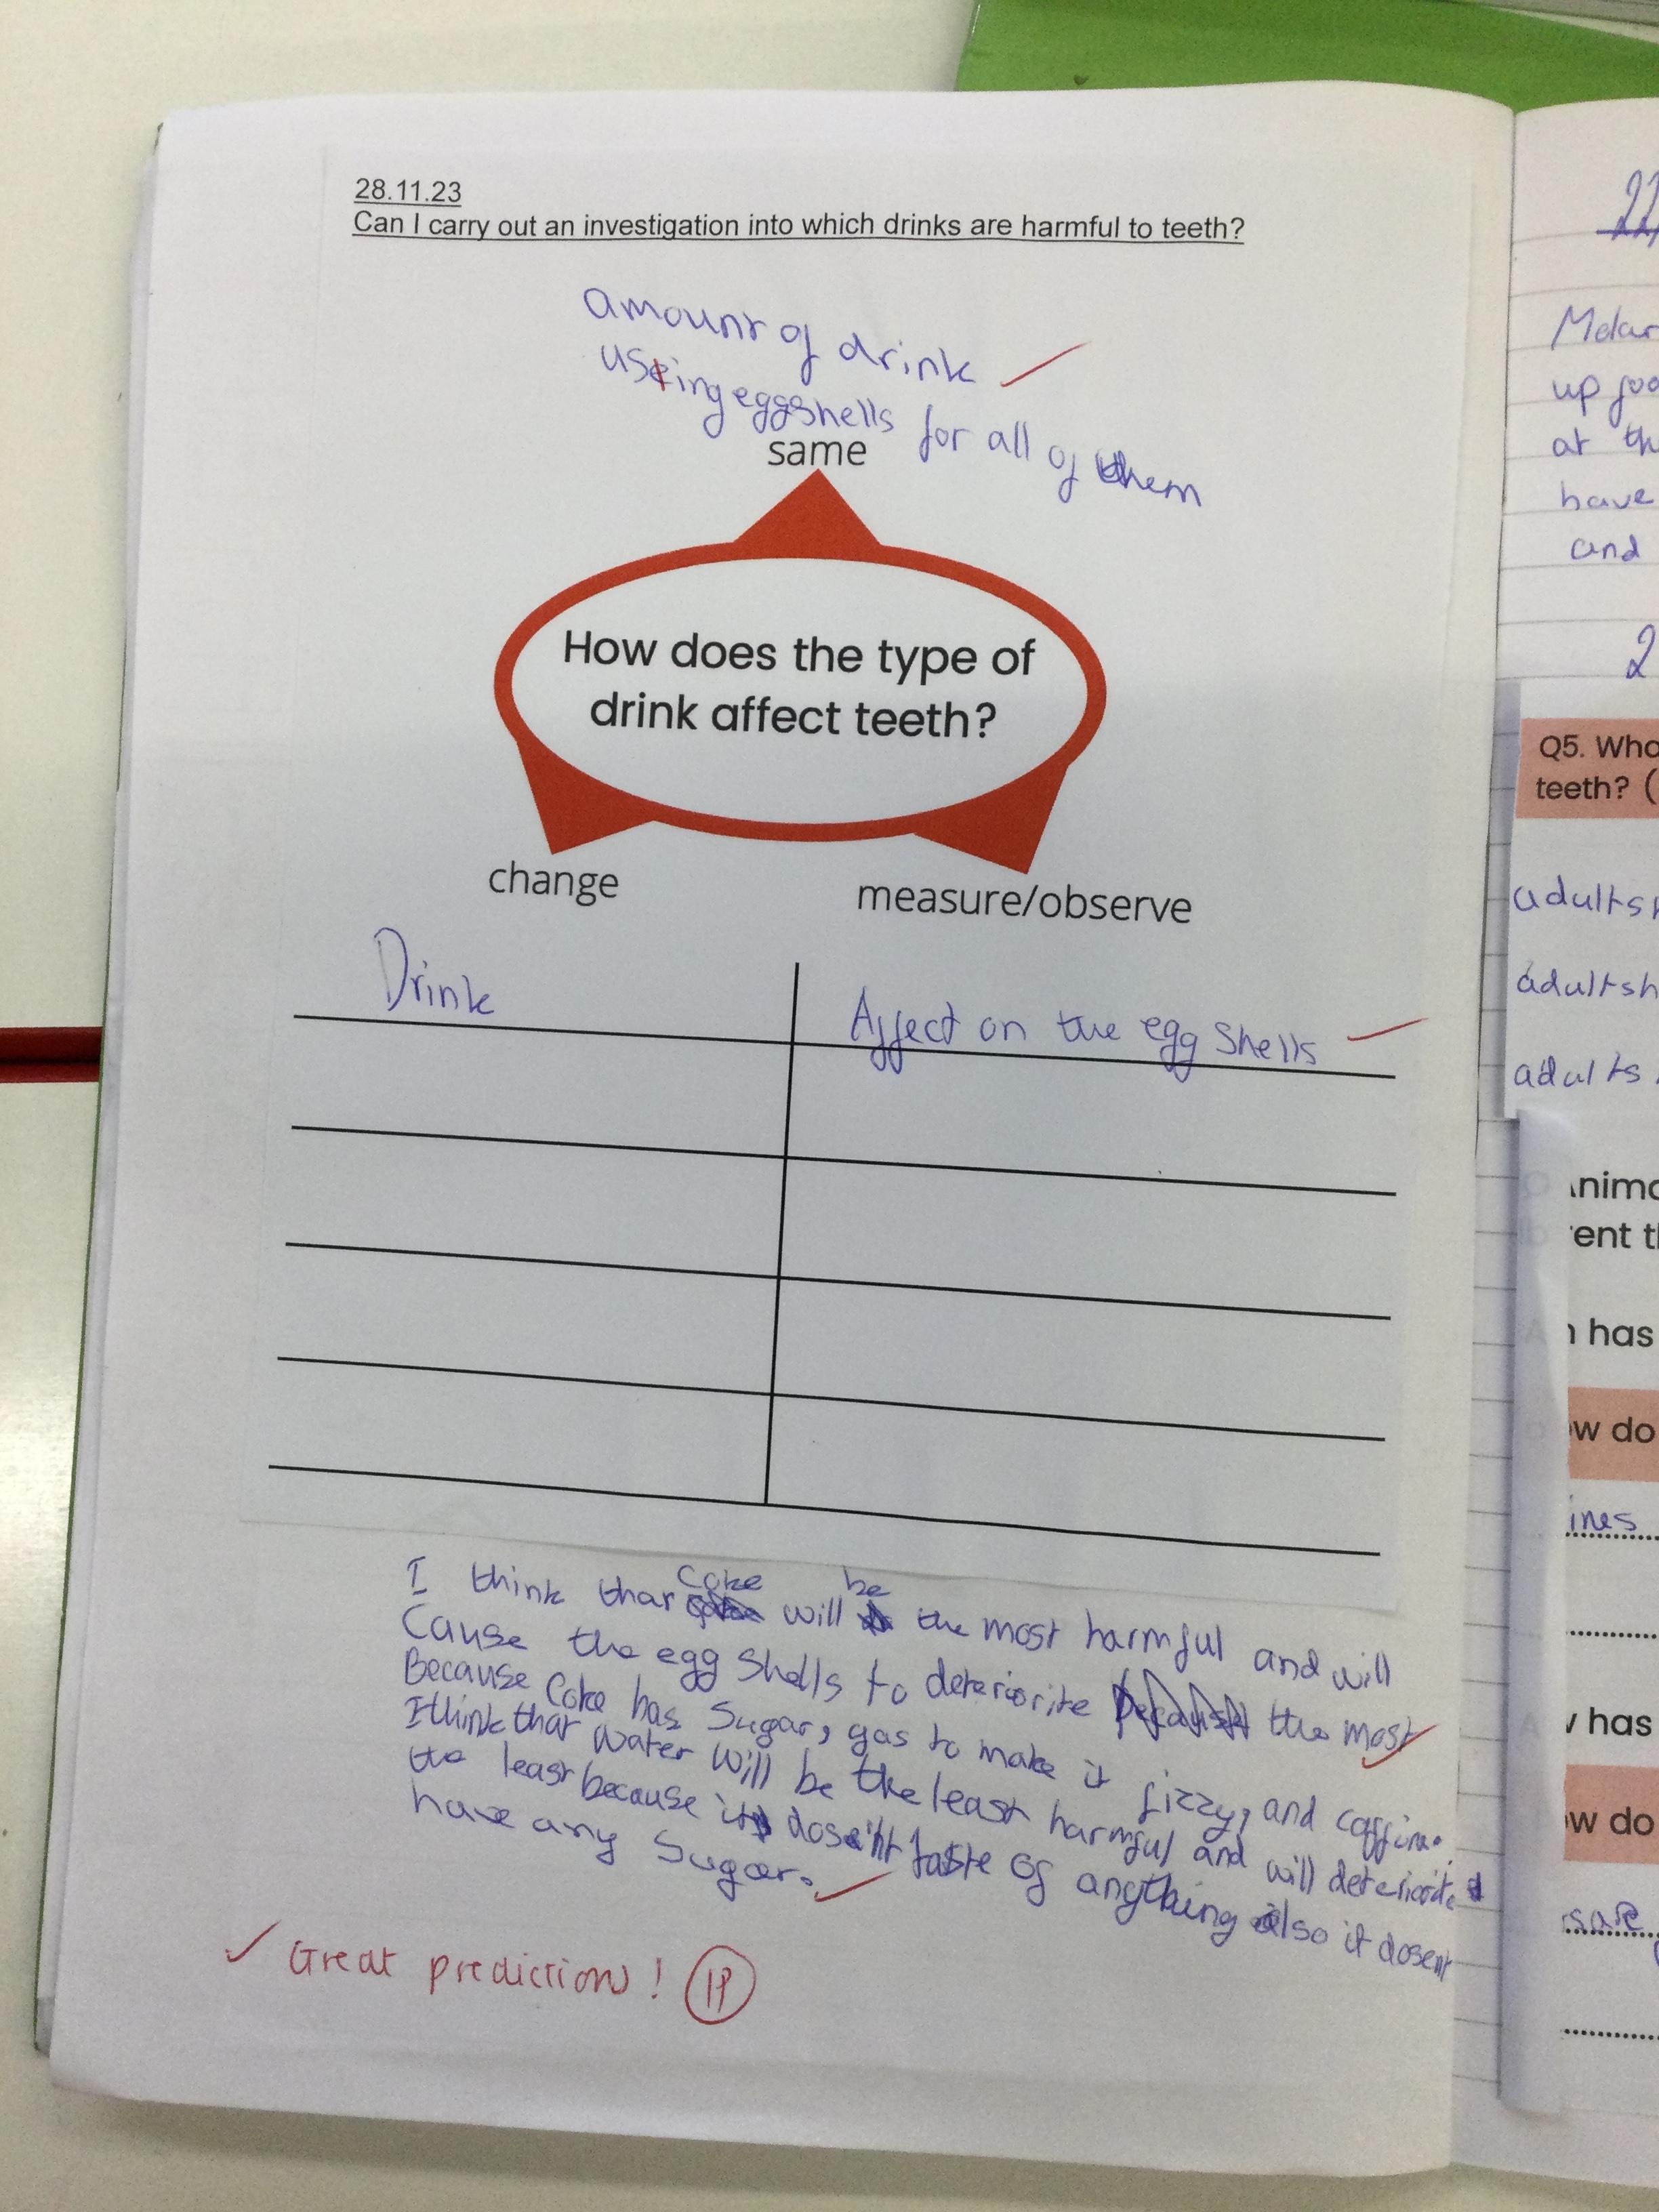 28.11.23
Can I carry out an investigation into which drinks are harmful to teeth?
amount of drink
using eggshells for all of them
same
How does the type of
drink affect teeth?
change
measure/observe
Drink
Affect on the egg shells
I think that Coke will be the most harmful and will
Cause the egg shells to deteriorite the most
Because Coke has Sugar, gas to make it fizzy, and caffine.
I think that water will be the least harmful and will deteriorite
the least because it dosen't taste of anything also it dosent
have any Sugar.
Great prediction!
22
Molar
up foo
at th
have
and
2
Q5. Wha
teeth? (
adults h
adults h
adults
nima
ent t
has
w do
ines
has
w do